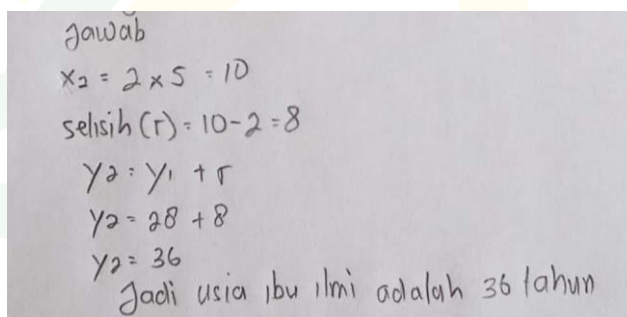 Jawab
x2 = 2 x 5 = 10
selisih (r) = 10 - 2 = 8
y2 = y1 + r
y2 = 28 + 8
y2 = 36
Jadi usia ibu ilmi adalah 36 tahun